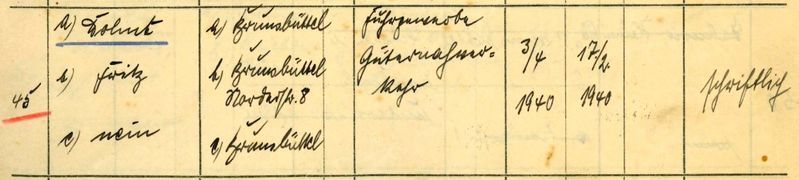 45
a) Dohrn
b) Fritz
c) nein
a) Brunsbüttel
b) Brunsbüttel
Norderstr. 8
c) Brunsbüttel
Fuhrgewerbe
Güternahver=
kehr
3/4
1940
17/2.
1940
schriftlich